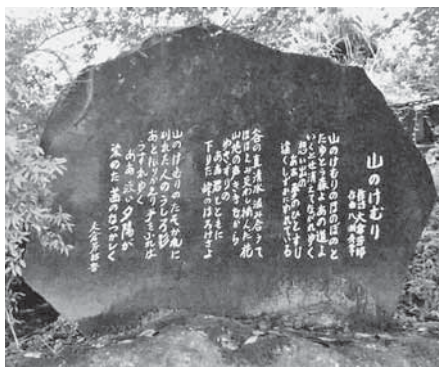 山のけむり
作詞 大倉芳郎
作曲 八洲秀章
山のけむりのほのぼのと
たゆとう森よあの道よ
いくとせ消えてながれゆく
想い出の
ああ夢のひとすじ
遠くしずかにゆれている
谷の真清水汲み合うて
ほほえみ交わし摘んだ花
山鳩の声ききながら
ゆきずりの
ああ君とともに
下りた峠のはろけさよ
山のけむりのたそがれに
別れた人のうしろ影
あとふりかえり手をふれば
うすれゆく
ああ淡い夕陽が
染めた茜のなつかしく
大倉芳郎書